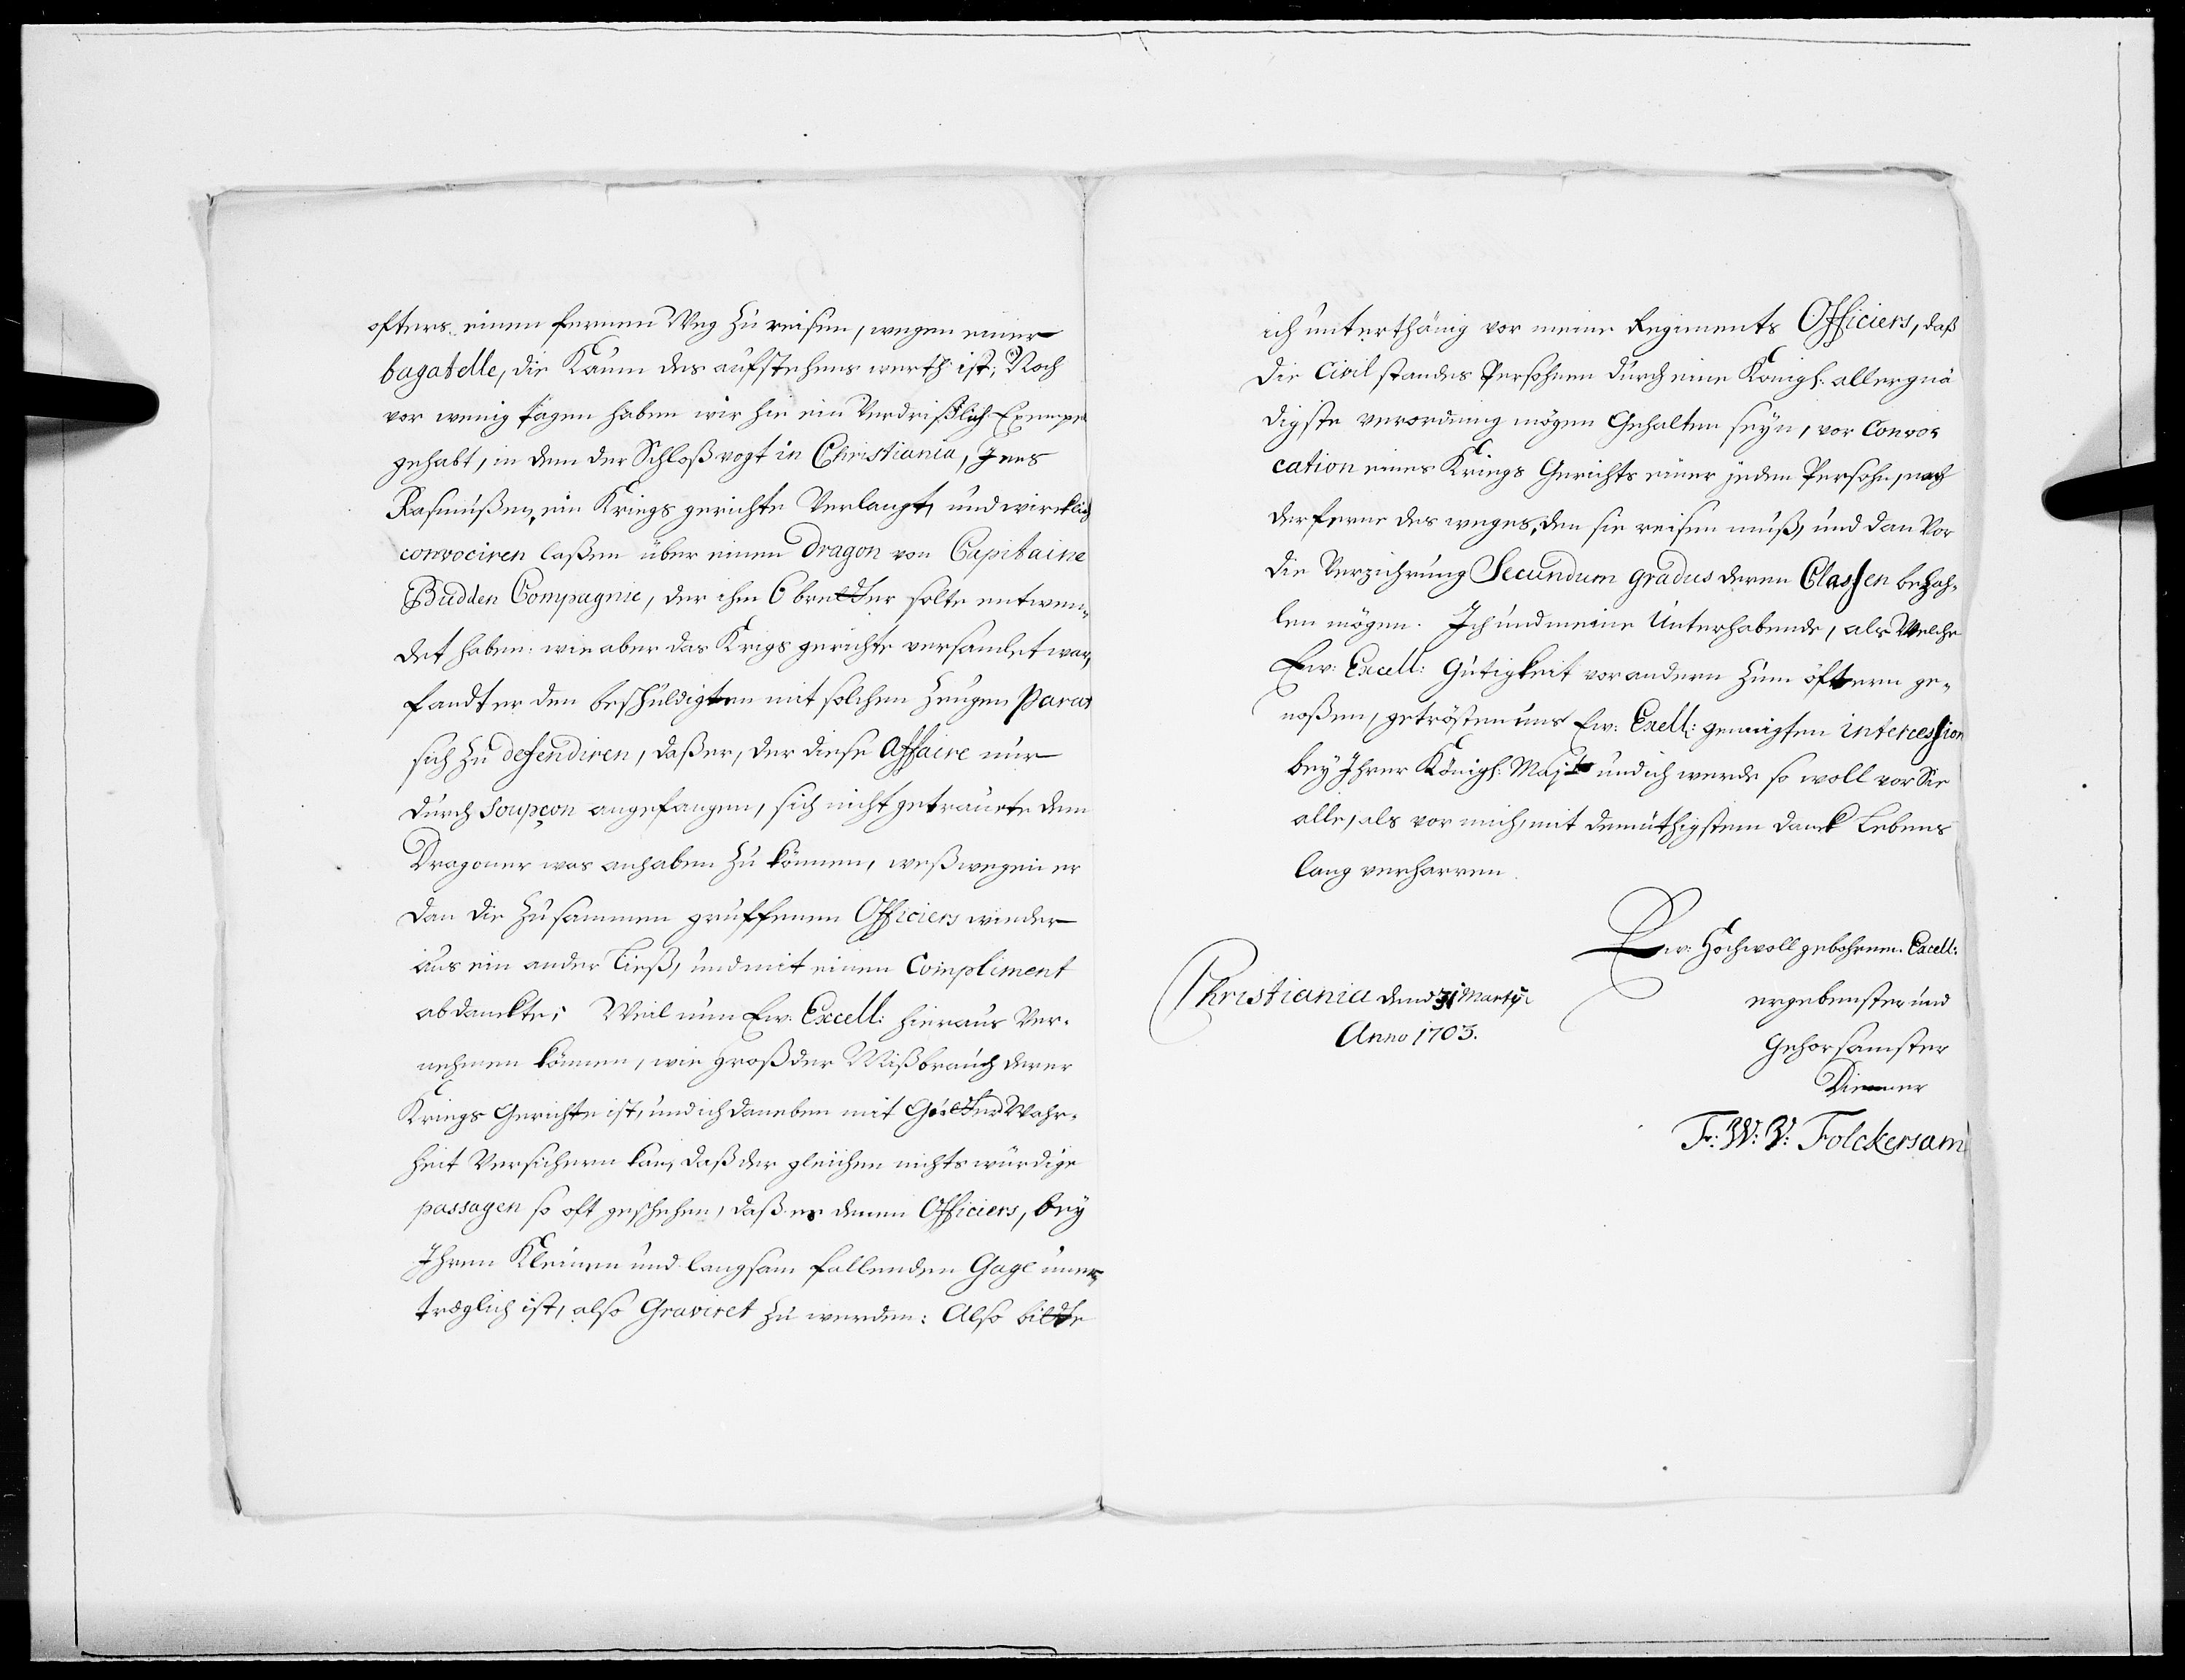 ofters einen fernen Weg zu reisen, wegen einer
bagatelle, die Kaum des aufstehens werth ist; Noch
vor wenig tagen haben wir hie ein Verdrißlich Exempel
gehabt, in dem der Schloßvogt in Christiania, Jens
Rasmußen, ein Kriegs gerichte Verlangt, und wircklich
convociren laßen über einen Dragon von Capitaine
Budden Compagnie, der ihm 6 bretter solte entwen¬
det haben: wie aber das Krigs gerichte versamlet war,
fandt er den beschuldigten mit solchen Zeugen parat
sich zu defendiren, daß er, der diese Affaire nur
durch soupçon angefangen, sich nicht getrauete dem
Dragoner was anhaben zu können, weßwegen er
dan die zusammen gruffenen Officiers wieder
aus ein ander Ließ, und mit einen Compliment
abdanckte; Weil nun Ew: Excell: hieraus Ver¬
nehmen können, wie groß der Mißbrauch derer
Kriegs Gerichte ist, und ich daneben mit Guetter Wahr¬
heit Versichern kan, daß der gleichen nichts würdige
passagen so oft geschehen, daß es denen Officiers, bey
Ihren Kleinen und langsam fallenden Gage uner¬
träglich ist, also Graviret zu werden: Also bitte
ich unterthänig vor meine Regiments Officiers, daß
die Civil standes Persohnen durch eine Königl: allergnä
digste verordnung mögen Gehalten seyn, vor Convo¬
cation eines Kriegs Gerichts einer jeden Persohn, nach
der ferne des weges, den sie reisen muß, und dan Vor
die Verzehrung Secundum gradus deren Classen bezah¬
len mögen. Ich und meine Unterhabende, als Welche
Ew: Excell: Gütigkeit vor andern zum öftern ge¬
noßen, getrösten uns Ew: Exell: geneigten intercession
bey Ihrer Königl: Majt: und ich werde so woll vor Sie
alle, als vor mich, mit demüthigstem danck Lebens
lang verharren.
Ew: Hochwoll gebohrnen Excell:
Christiania dend 31 Martÿ
Anno 1703.
ergebenster und
Gehorsamster
Diener
F: W: V: Folckersam